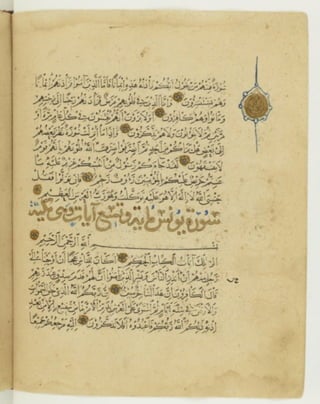 سورة فمنهم من يقول أيكم زادته هذه إيمانا فأما الذين آمنوا فزادتهم إيمانا
وهم يستبشرون وأما الذين في قلوبهم مرض فزادتهم رجسا إلى رجسهم
وماتوا وهم كافرون أولا يرون أنهم يفتنون في كل عام مرة أو
مرتين ثم لا يتوبون ولا هم يذكرون وإذا ما أنزلت سورة نظر بعضهم
إلى بعض هل يراكم من أحد ثم انصرفوا صرف الله قلوبهم بأنهم قوم
لا يفقهون لقد جاءكم رسول من أنفسكم عزيز عليه ما
عنتم حريص عليكم بالمؤمنين رؤف رحيم فإن تولوا فقل
حسبي الله لا إله إلا هو عليه توكلت وهو رب العرش العظيم
سورة يونس مائة وتسع آيات وهي مكية
بسم الله الرحمن الرحيم
الر تلك آيات الكتاب الحكيم أكان للناس عجبا أن أوحينا إلى
رجل منهم أن أنذر الناس وبشر الذين آمنوا أن لهم قدم صدق عند ربهم
قال الكافرون إن هذا لساحر مبين إن ربكم الله الذي خلق السموات
والأرض في ستة أيام ثم استوى على العرش يدبر الأمر ما من شفيع إلا من بعد
إذنه ذلكم الله ربكم فاعبدوه أفلا تذكرون إليه مرجعكم جميعا